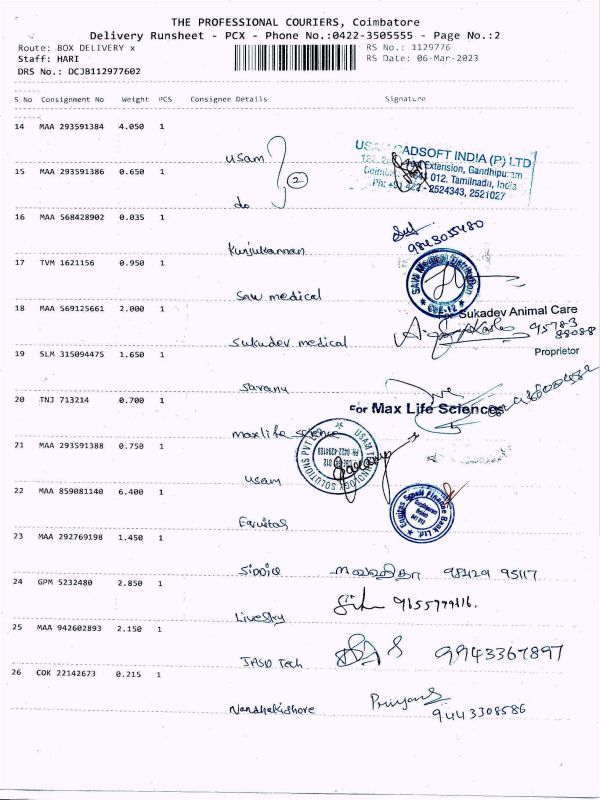 THE PROFESSIONAL COURIERS, Coimbatore
Delivery Runsheet - PCX - Phone No.:0422-3505555 - Page No.:2
Route: BOX DELIVERY x
RS No.: 1129776
Staff: HARI
RS Date: 06-Mar-2023
DRS No.: DCJB112977602
S No Consignment No Weight PCS Consignee Details Signature
14 MAA 293591384 4.050 1
usam
USAM CADSOFT INDIA (P) LTD
Extension, Gandhipuram
012. Tamilnadu, India
2524343, 2521027
15 MAA 293591386 0.650 1
2
do
16 MAA 568428902 0.035 1
9843055480
Kunjukannan
17 TVM 1621156 0.950 1
SAW Medical Distribution
CBE-12
Saw medical
18 MAA 569125661 2.000 1
For Sukadev Animal Care
95783
88088
Proprietor
sukudev medical
19 SLM 315094475 1.650 1
Saranu
20 TNJ 713214 0.700 1
For Max Life Sciences
maxlife science
21 MAA 293591388 0.750 1
USAM TECHNOLOGY SOLUTIONS PVT
usam
22 MAA 859081140 6.400 1
Equitas Small Finance Bank Ltd.
Equitas
23 MAA 292769198 1.450 1
Siddiq 98429 95117
24 GPM 5232480 2.850 1
Livesky 9655779116.
25 MAA 942602893 2.150 1
JASD Tech 9943367897
26 COK 22142673 0.215 1
Nandhakishore
9443308586